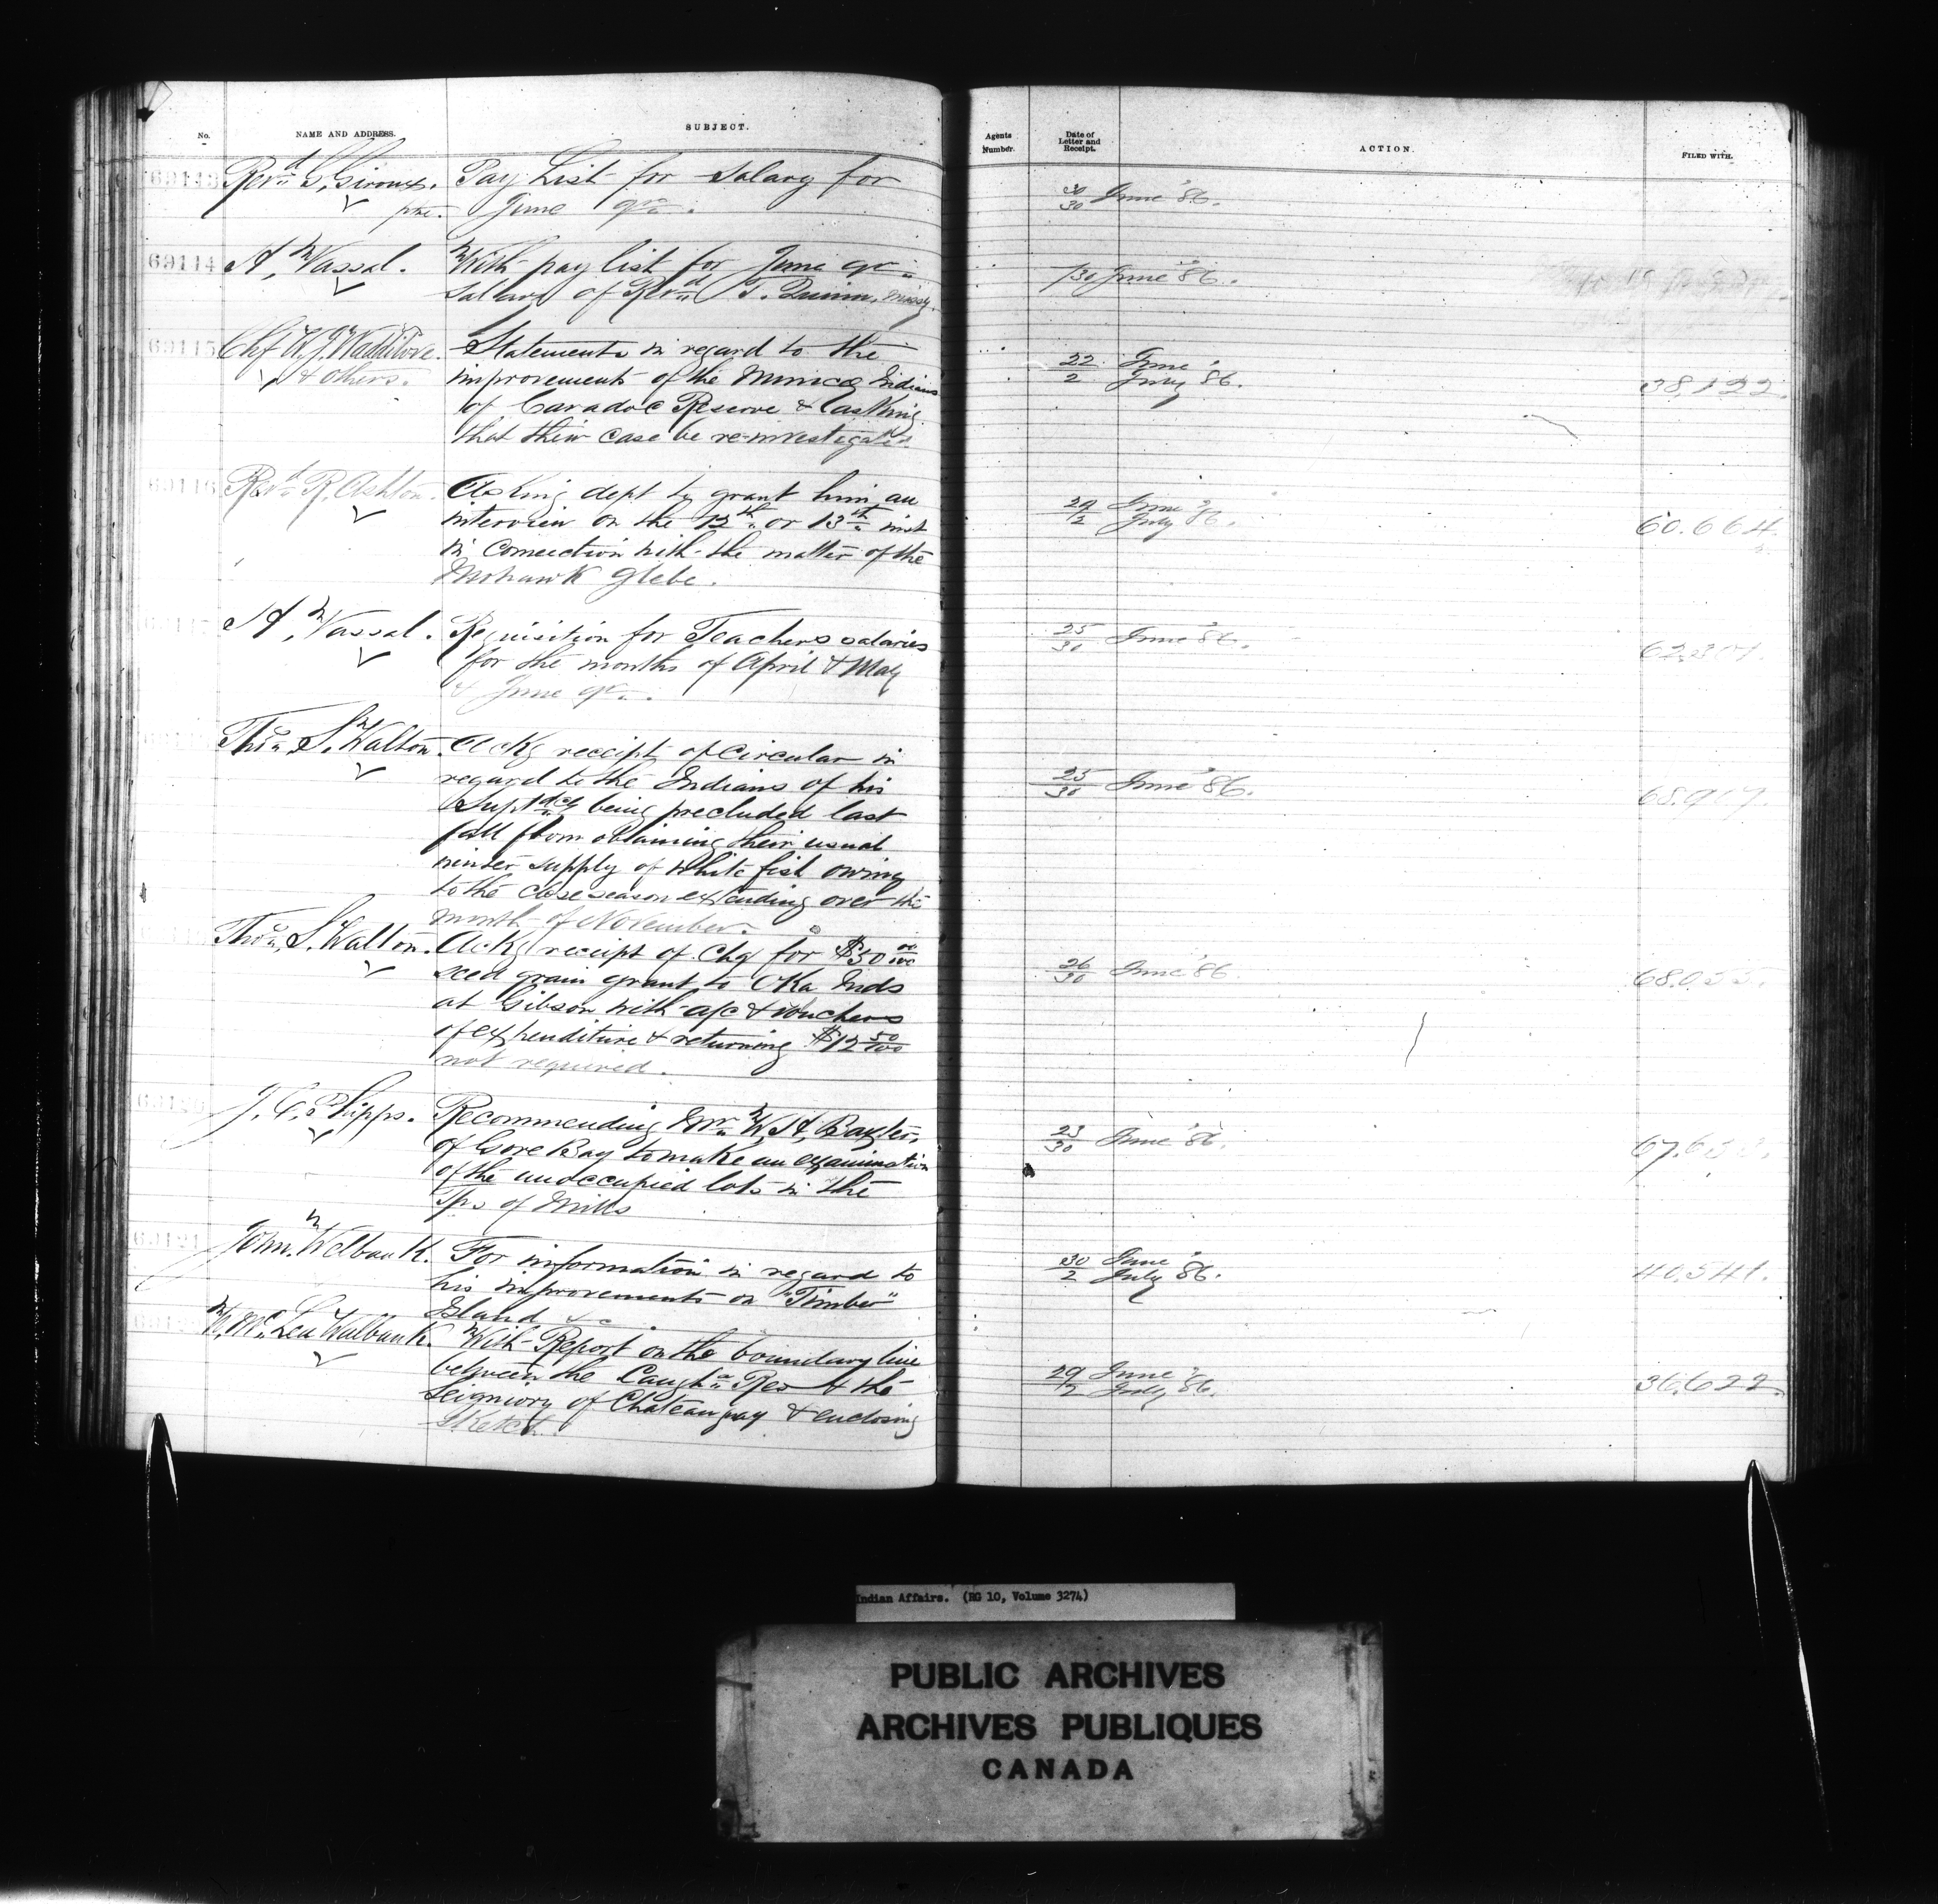 No. NAME AND ADDRESS. SUBJECT. Agents Number. Date of Letter and Receipt. ACTION. FILED WITH.
69113 Revd G. Giroux. Pay List for Salary for 30/30 June '86.
ptre. June qr.
69114 A. Vassal. With pay list for June qr. /30 June '86.
Salary of Revd T. Quinn, missy.
69115 Chf W. J. Waddilove Statements in regard to the 22 June
& others. improvements of the Munice Indians 2 July '86. 38,122.
of Caradoc Reserve & asking
that their case be re-investigated
69116 Revd R. Ashton. Asking dept to grant him an 29 June
interview on the 12th or 13th inst 2 July '86. 60.664
in connection with the matter of the
Mohawk Glebe.
A. Vassal. Requisition for Teachers salaries 25/30 June '86.
for the months of April & May 62,307.
& June qr.
Thos. S. Walton. Ackg receipt of Circular in
regard to the Indians of his 25/30 June '86.
Suptdcy being precluded last 68.917.
fall from obtaining their usual
winter supply of white fish owing
to the close season extending over the
month of November.
Thos. S. Walton. Ackg receipt of Chq for $50 00/100
seed grain grant to Oka Inds 26/30 June '86.
at Gibson with a/c & vouchers
of expenditure & returning $12 50/100
not required.
69120 J. C. Phipps. Recommending Mr. W. H. Baxter, 23/30 June '86.
of Gore Bay to make an examination
of the unoccupied lots in the
Tps of Mills
69121 John Welbank. For information in regard to 30 June
his improvements on "Timber" 2 July '86. 40,541.
Island &c
W. McLea Walbank. With Report on the boundary line
between the Caugha Res & the 29 June
Seigniory of Chateauguay & enclosing 2 July '86. 36,622
Sketch.
Indian Affairs. (RG 10, Volume 3274)
PUBLIC ARCHIVES
ARCHIVES PUBLIQUES
CANADA